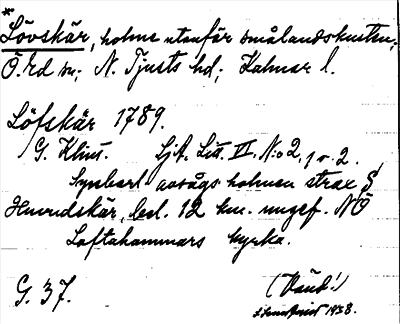 *
Lövskär, holme utanför Smålandskusten;
Ö. Ed sn; N. Tjusts hd; Kalmar l.
Löfskär 1789.
G. Klint. Sjk. Litt. VI. No 2, 1 o. 2.
Synbart avsågs holmen strax S
Huvudskär, bel. 12 km. ungef. NÖ
Loftahammars kyrka.
G. 37. (Vänd!)
1938.